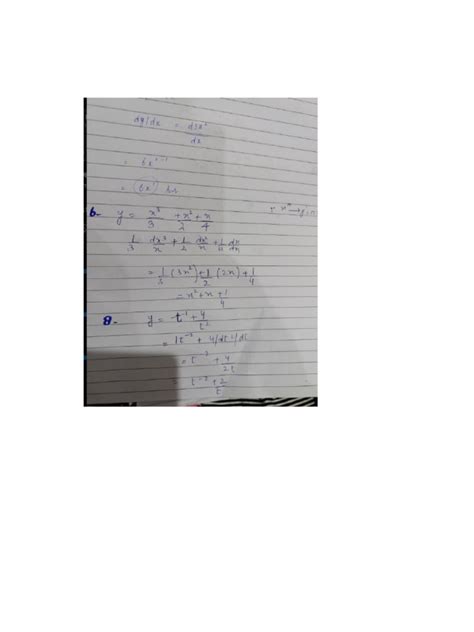 dy/dx = d3x²/dx
= 6x²⁻¹
= 6x
6- y = x³/3 + x²/2 + x/4
1/3 dx³/x + 1/2 dx²/x + 1/4 dx/dx
= 1/3 (3x²) + 1/2 (2x) + 1/4
= x² + x + 1/4
8- y = t⁻¹ + 4/t²
= 1t⁻² + 4/dt²/dt
= t⁻² + 4/2t
= t⁻² + 2/t